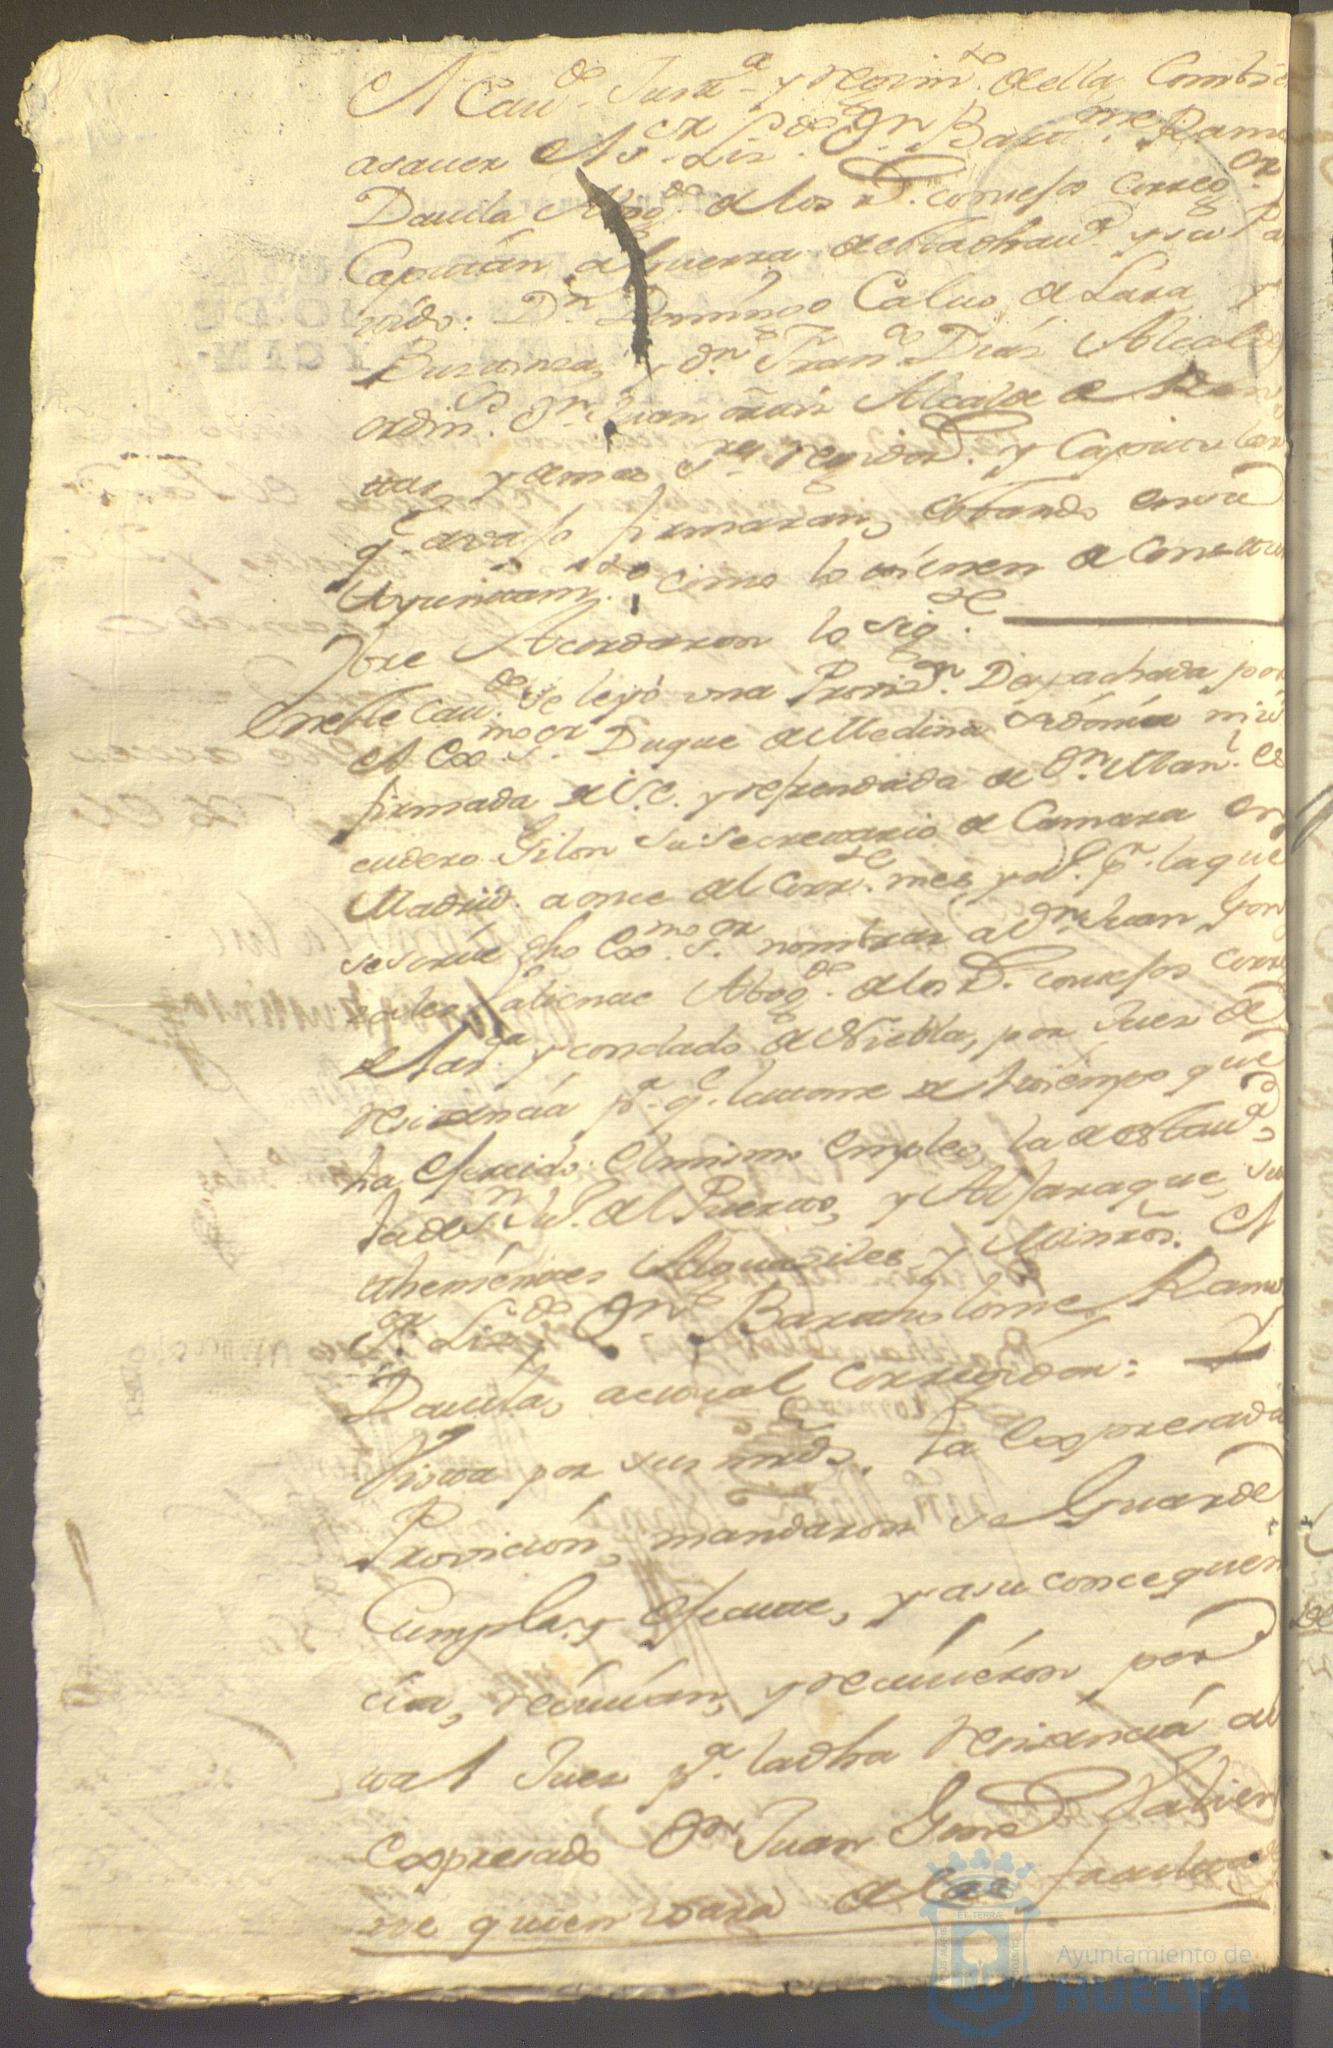 El Cav.do Just.a y regim.te de ella combie
asaver el S.or Liz.do D.n Bart.me Ramos
Davila Abog.do de los R.s consejos correg.or
Capitán a guerra de esta dha v.a y su Pa
rtido: D.n Domingo Calvo de Lara y
y D.n Fran.co Díaz Alcaldes
ordin.os D.n Juan Alcalde de
y demas S.res regidor.s y Capitulares
q.e avajo firmaran, estando en su
Ayuntam.to como lo tienen de Costum
bre Acordaron lo sig.te
En este Cav.do se leyó una Provis.on Despachada por
el Ex.mo S.or Duque de Medina Sidónia mi S.or
firmada de S.E. y refrendada de D.n Man.l Es
cudero Gilon su Secretario de Camara en
Madrid a once del corr.te mes y p.r la que
se sirve dho Ex.mo S.or nombrar a D.n Juan Gon
zales Valiente Abog.do de los R.s consejos corre
y condado de Niebla, por Juez de
residencia p.a q.e la tome del tiempo que
ha ejercido el mismo empleo, la de esta v.a
la de S.n Ju.n del Puerto, y Aljaraque, sus
thenientes Alguaciles y Ministros. Al
S.or Liz.do D.n Bartholome Ramos
Davila, actual Corregidor: Y
Vista por sus mrds. la expresada
Provición, mandaron se Guarde
Cumpla y ejecute, y a su concequen
cia, recivian, y recivieron por
tal Juez p.a la dha residencia al
expresado D.n Juan Gonz.s Valien
te quien usara de las faculta
Ayuntamiento de
HUELVA